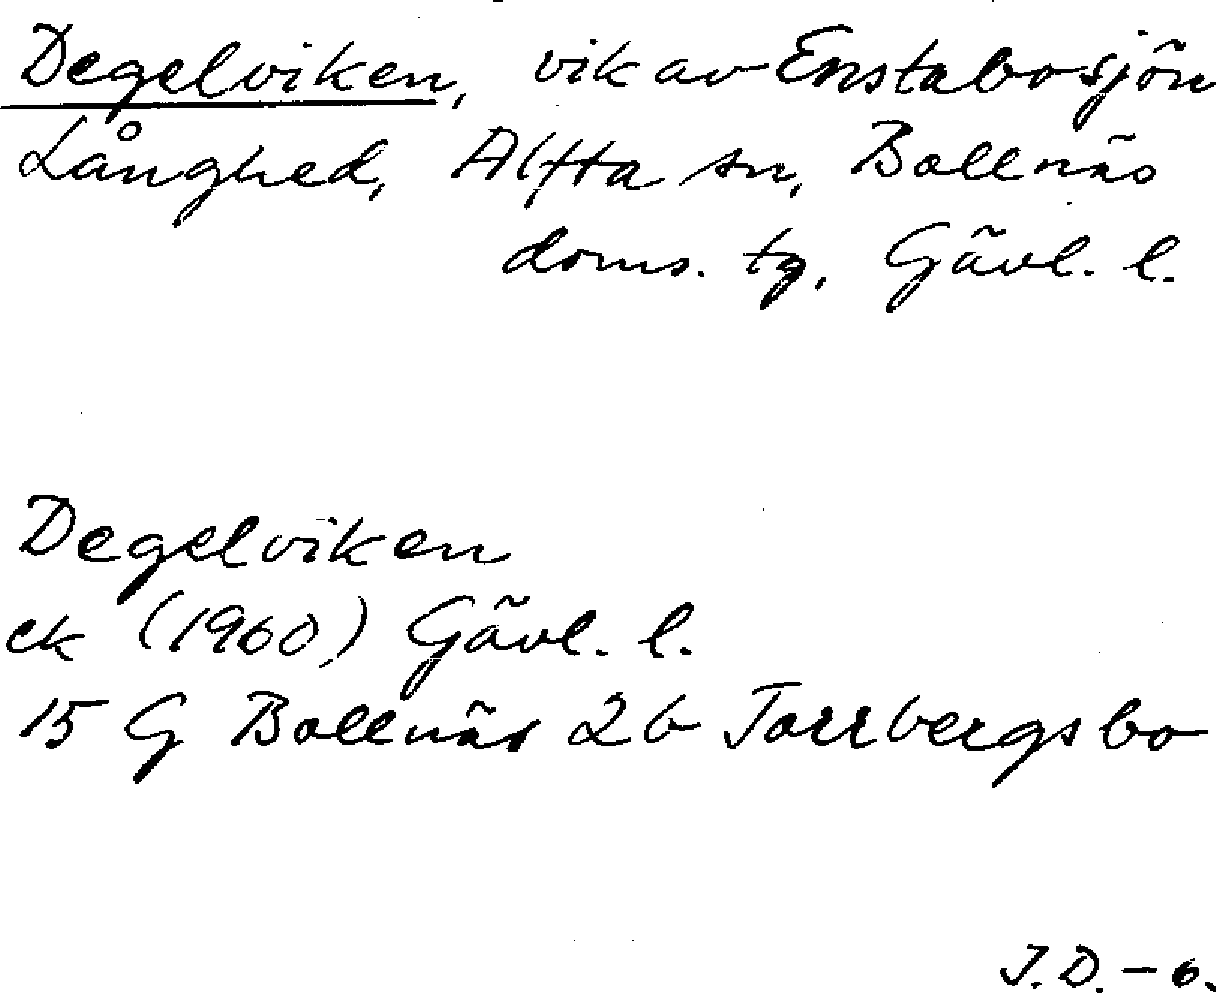 Degelviken, vik av Enstabosjön
Långhed, Alfta sn, Bollnäs
doms. tg, Gävl. l.
Degelviken
ek (1960) Gävl. l.
15 G Bollnäs 2b Torrbergsbo
J.D. – o.